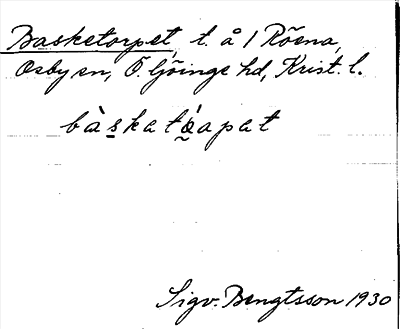 Basketorpet, t. å / Röena,
Osby sn, Ö. Göinge hd, Krist. l.
bàskatǿapat
Sigv. Bengtsson 1930